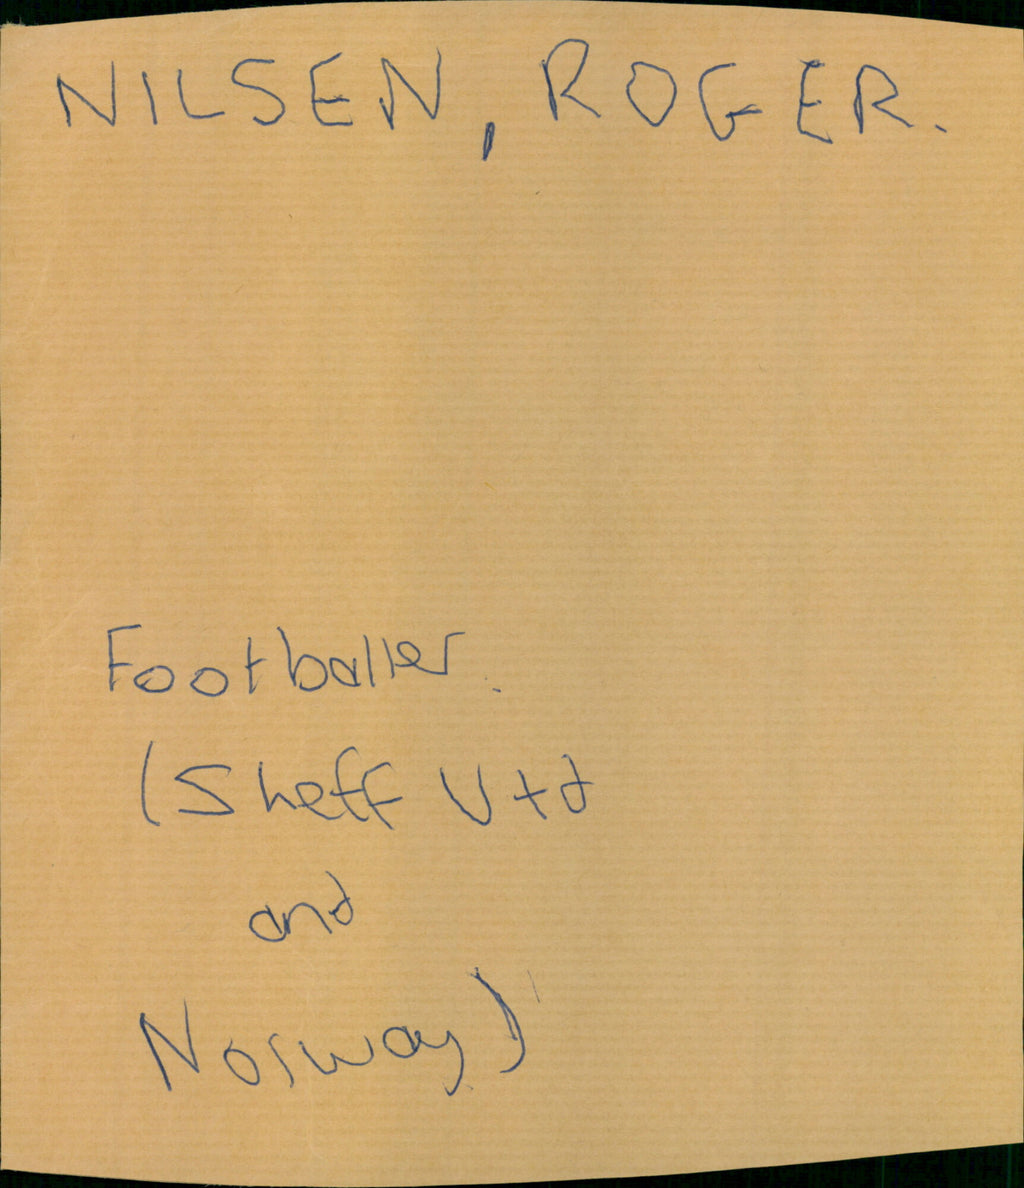 NILSEN, ROGER.
Footballer.
(Sheff Utd
and
Norway)